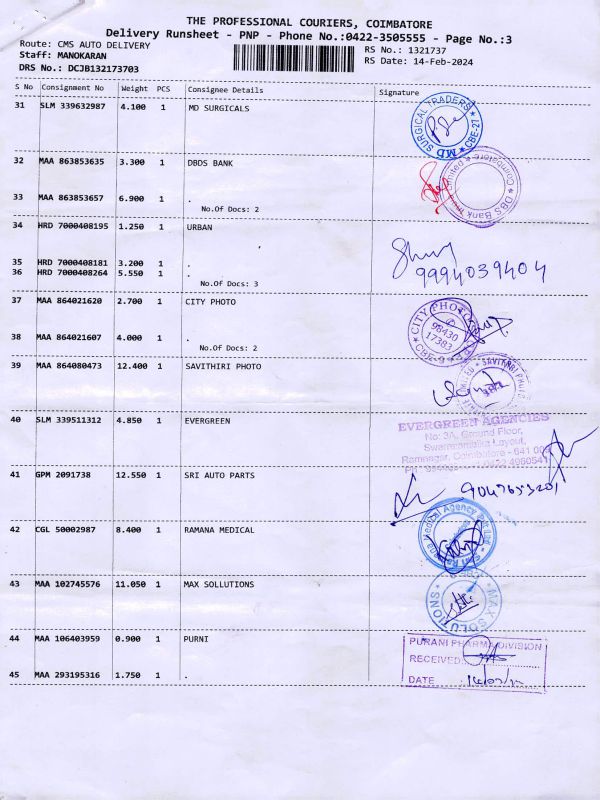 THE PROFESSIONAL COURIERS, COIMBATORE
Delivery Runsheet - PNP - Phone No.:0422-3505555 - Page No.:3
Route: CMS AUTO DELIVERY
RS No.: 1321737
Staff: MANOKARAN
RS Date: 14-Feb-2024
DRS No.: DCJB132173703
S No Consignment No Weight PCS Consignee Details Signature
31 SLM 339632987 4.100 1 MD SURGICALS
MD SURGICAL TRADERS CBE-27
32 MAA 863853635 3.300 1 DBDS BANK
DBS Bank India Limited Coimbatore
33 MAA 863853657 6.900 1 .
No.Of Docs: 2
34 HRD 7000408195 1.250 1 URBAN
35 HRD 7000408181 3.200 1 .
36 HRD 7000408264 5.550 1 .
No.Of Docs: 3
9994039404
37 MAA 864021620 2.700 1 CITY PHOTO
CITY PHOTO
98430
17383
CBE-9
38 MAA 864021607 4.000 1 .
No.Of Docs: 2
39 MAA 864080473 12.400 1 SAVITHIRI PHOTO
SAVITHRI PHOTO
40 SLM 339511312 4.850 1 EVERGREEN
EVERGREEN AGENCIES
No: 3A, Ground Floor,
Layout,
Ramnagar, Coimbatore - 641 009
4960541
41 GPM 2091738 12.550 1 SRI AUTO PARTS
9047653201
42 CGL 50002987 8.400 1 RAMANA MEDICAL
Medical Agency Pvt Ltd
43 MAA 102745576 11.050 1 MAX SOLLUTIONS
MAX SOLUTIONS
44 MAA 106403959 0.900 1 PURNI
PURANI PHARMA DIVISION
RECEIVED
DATE
45 MAA 293195316 1.750 1 .